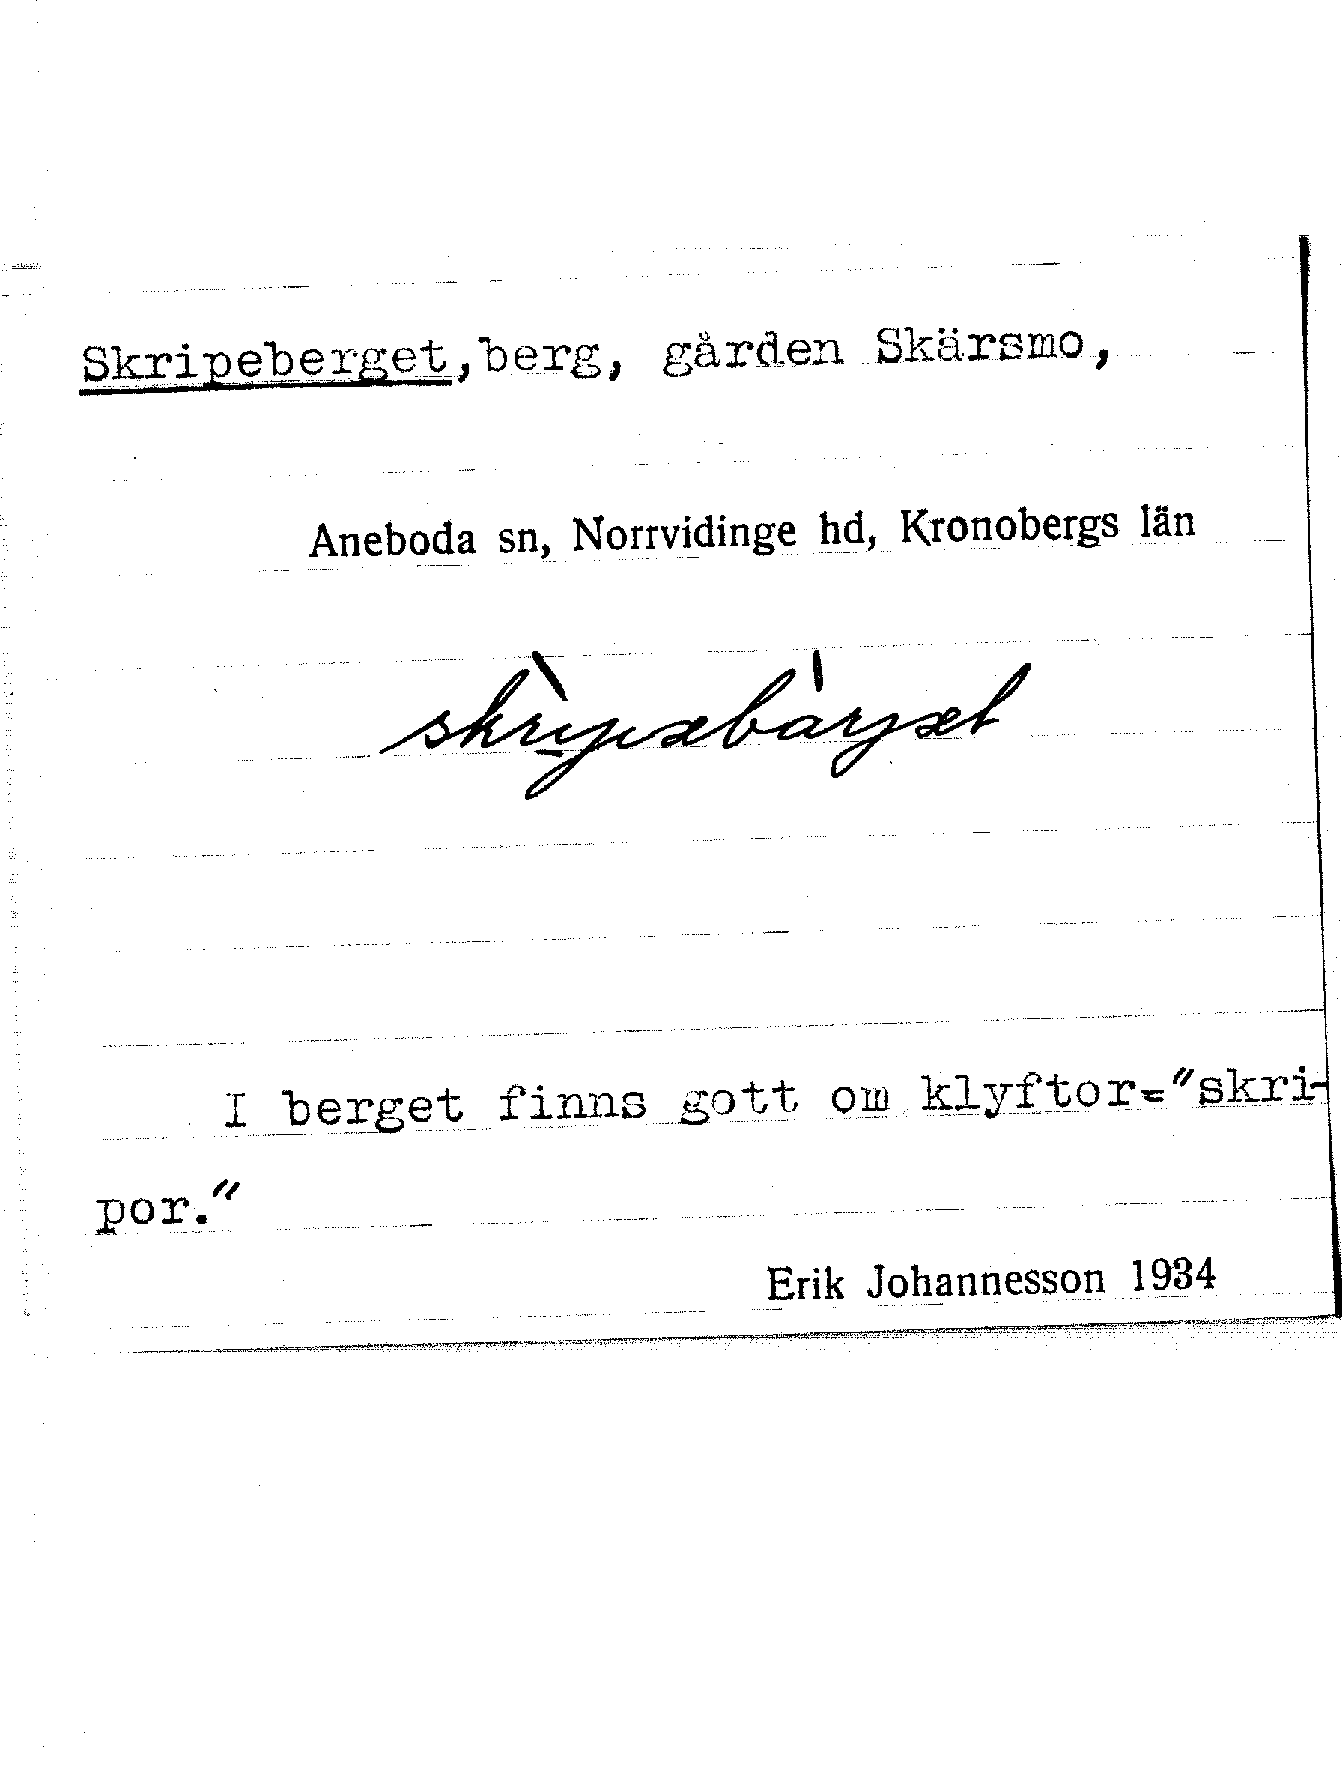 Skripeberget,berg, gården Skärsmo,
Aneboda sn, Norrvidinge hd, Kronobergs län
I berget finns gott om klyftor="skri-
por."
Erik Johannesson 1934